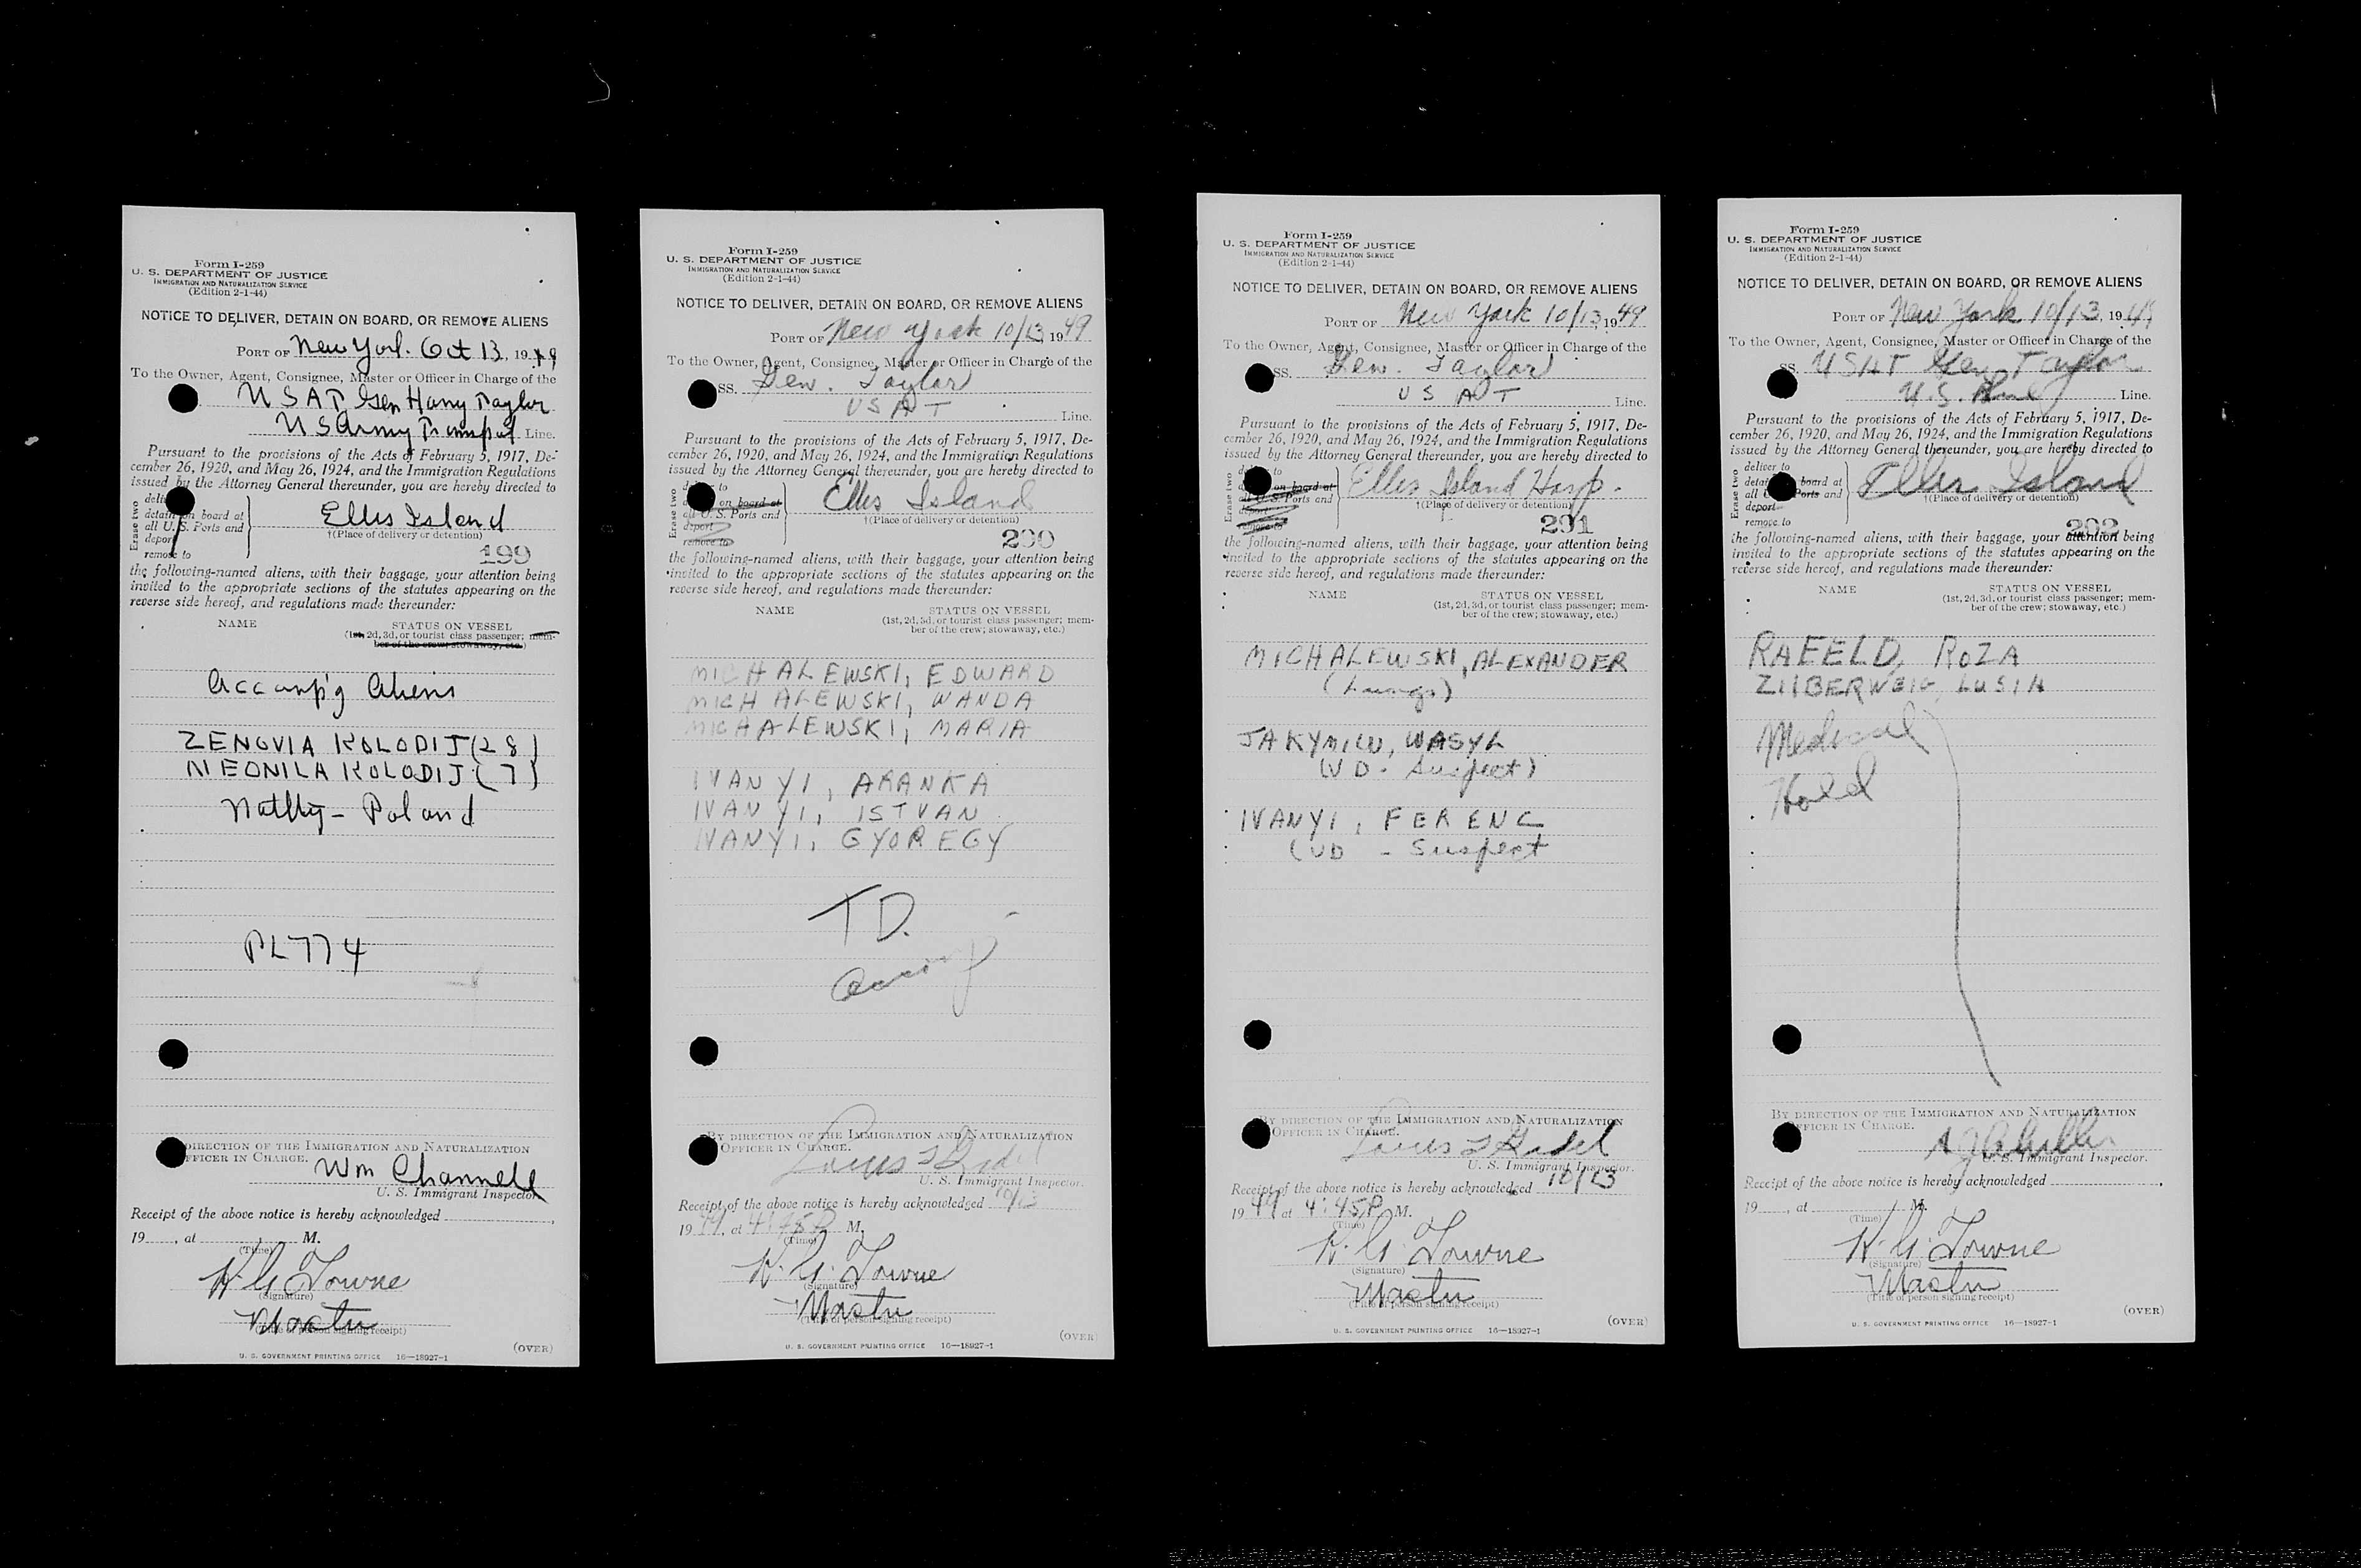 Form I-259
U. S. DEPARTMENT OF JUSTICE
IMMIGRATION AND NATURALIZATION SERVICE
(Edition 2-1-44)
NOTICE TO DELIVER, DETAIN ON BOARD, OR REMOVE ALIENS
PORT OF New York. Oct 13, 1949
To the Owner, Agent, Consignee, Master or Officer in Charge of the
USAT Gen Harry Taylor
US Army Transport Line.
Pursuant to the provisions of the Acts of February 5, 1917, De-
cember 26, 1920, and May 26, 1924, and the Immigration Regulations
issued by the Attorney General thereunder, you are hereby directed to
Erase two
detain on board at
all U. S. Ports and
deport
remove to
Ellis Island
†(Place of delivery or detention)
199
the following-named aliens, with their baggage, your attention being
invited to the appropriate sections of the statutes appearing on the
reverse side hereof, and regulations made thereunder:
NAME STATUS ON VESSEL
(1st, 2d, 3d, or tourist class passenger; mem-
ber of the crew; stowaway, etc.)
Accomp'g Aliens
ZENOVIA KOLODIJ (28)
NEONILA KOLODIJ (7)
Natlty - Poland
PL774
DIRECTION OF THE IMMIGRATION AND NATURALIZATION
OFFICER IN CHARGE.
Wm Channell
U. S. Immigrant Inspector
Receipt of the above notice is hereby acknowledged
19 , at M.
(Time)
K. G. Towne
(Signature)
Master
(Title of person signing receipt)
(OVER)
U. S. GOVERNMENT PRINTING OFFICE 16—18927-1
Form I-259
U. S. DEPARTMENT OF JUSTICE
IMMIGRATION AND NATURALIZATION SERVICE
(Edition 2-1-44)
NOTICE TO DELIVER, DETAIN ON BOARD, OR REMOVE ALIENS
PORT OF New York 10/13, 1949
To the Owner, Agent, Consignee, Master or Officer in Charge of the
SS. Gen. Taylor
USAT Line.
Pursuant to the provisions of the Acts of February 5, 1917, De-
cember 26, 1920, and May 26, 1924, and the Immigration Regulations
issued by the Attorney General thereunder, you are hereby directed to
Erase two
to
on board at
all U. S. Ports and
deport
remove to
Ellis Island
†(Place of delivery or detention)
200
the following-named aliens, with their baggage, your attention being
invited to the appropriate sections of the statutes appearing on the
reverse side hereof, and regulations made thereunder:
NAME STATUS ON VESSEL
(1st, 2d, 3d, or tourist class passenger; mem-
ber of the crew; stowaway, etc.)
MICHALEWSKI, EDWARD
MICHALEWSKI, WANDA
MICHALEWSKI, MARIA
IVANYI, ARANKA
IVANYI, ISTVAN
IVANYI, GYOREGY
TD.
BY DIRECTION OF THE IMMIGRATION AND NATURALIZATION
OFFICER IN CHARGE.
Louis
U. S. Immigrant Inspector.
Receipt of the above notice is hereby acknowledged 10/13
1949, at 4:45P M.
(Time)
K. G. Towne
(Signature)
Master
(Title of person signing receipt)
(OVER)
U. S. GOVERNMENT PRINTING OFFICE 16—18927-1
Form I-259
U. S. DEPARTMENT OF JUSTICE
IMMIGRATION AND NATURALIZATION SERVICE
(Edition 2-1-44)
NOTICE TO DELIVER, DETAIN ON BOARD, OR REMOVE ALIENS
PORT OF New York 10/13, 1949
To the Owner, Agent, Consignee, Master or Officer in Charge of the
SS. Gen. Taylor
USAT Line.
Pursuant to the provisions of the Acts of February 5, 1917, De-
cember 26, 1920, and May 26, 1924, and the Immigration Regulations
issued by the Attorney General thereunder, you are hereby directed to
Erase two
to
on board at
all U. S. Ports and
deport
remove to
Ellis Island Hosp.
†(Place of delivery or detention)
201
the following-named aliens, with their baggage, your attention being
invited to the appropriate sections of the statutes appearing on the
reverse side hereof, and regulations made thereunder:
NAME STATUS ON VESSEL
(1st, 2d, 3d, or tourist class passenger; mem-
ber of the crew; stowaway, etc.)
MICHALEWSKI, ALEXANDER
(Lungs)
JAKYMIW, WASYL
(VD - Suspect)
IVANYI, FERENC
(VD - Suspect
BY DIRECTION OF THE IMMIGRATION AND NATURALIZATION
OFFICER IN CHARGE.
Louis
U. S. Immigrant Inspector.
Receipt of the above notice is hereby acknowledged 10/13
1949 at 4:45P M.
(Time)
K. G. Towne
(Signature)
Master
(Title of person signing receipt)
(OVER)
U. S. GOVERNMENT PRINTING OFFICE 16—18927-1
Form I-259
U. S. DEPARTMENT OF JUSTICE
IMMIGRATION AND NATURALIZATION SERVICE
(Edition 2-1-44)
NOTICE TO DELIVER, DETAIN ON BOARD, OR REMOVE ALIENS
PORT OF New York 10/13, 1949
To the Owner, Agent, Consignee, Master or Officer in Charge of the
SS. USAT Gen Taylor
U.S. Line.
Pursuant to the provisions of the Acts of February 5, 1917, De-
cember 26, 1920, and May 26, 1924, and the Immigration Regulations
issued by the Attorney General thereunder, you are hereby directed to
Erase two
deliver to
detain board at
all U. Ports and
deport
remove to
Ellis Island
†(Place of delivery or detention)
202
the following-named aliens, with their baggage, your attention being
invited to the appropriate sections of the statutes appearing on the
reverse side hereof, and regulations made thereunder:
NAME STATUS ON VESSEL
(1st, 2d, 3d, or tourist class passenger; mem-
ber of the crew; stowaway, etc.)
RAFELD, ROZA
ZILBERWEIG, LUSIA
Medical
Hold
BY DIRECTION OF THE IMMIGRATION AND NATURALIZATION
OFFICER IN CHARGE.
U. S. Immigrant Inspector.
Receipt of the above notice is hereby acknowledged
19 , at M.
(Time)
K. G. Towne
(Signature)
Master
(Title of person signing receipt)
(OVER)
U. S. GOVERNMENT PRINTING OFFICE 16—18927-1